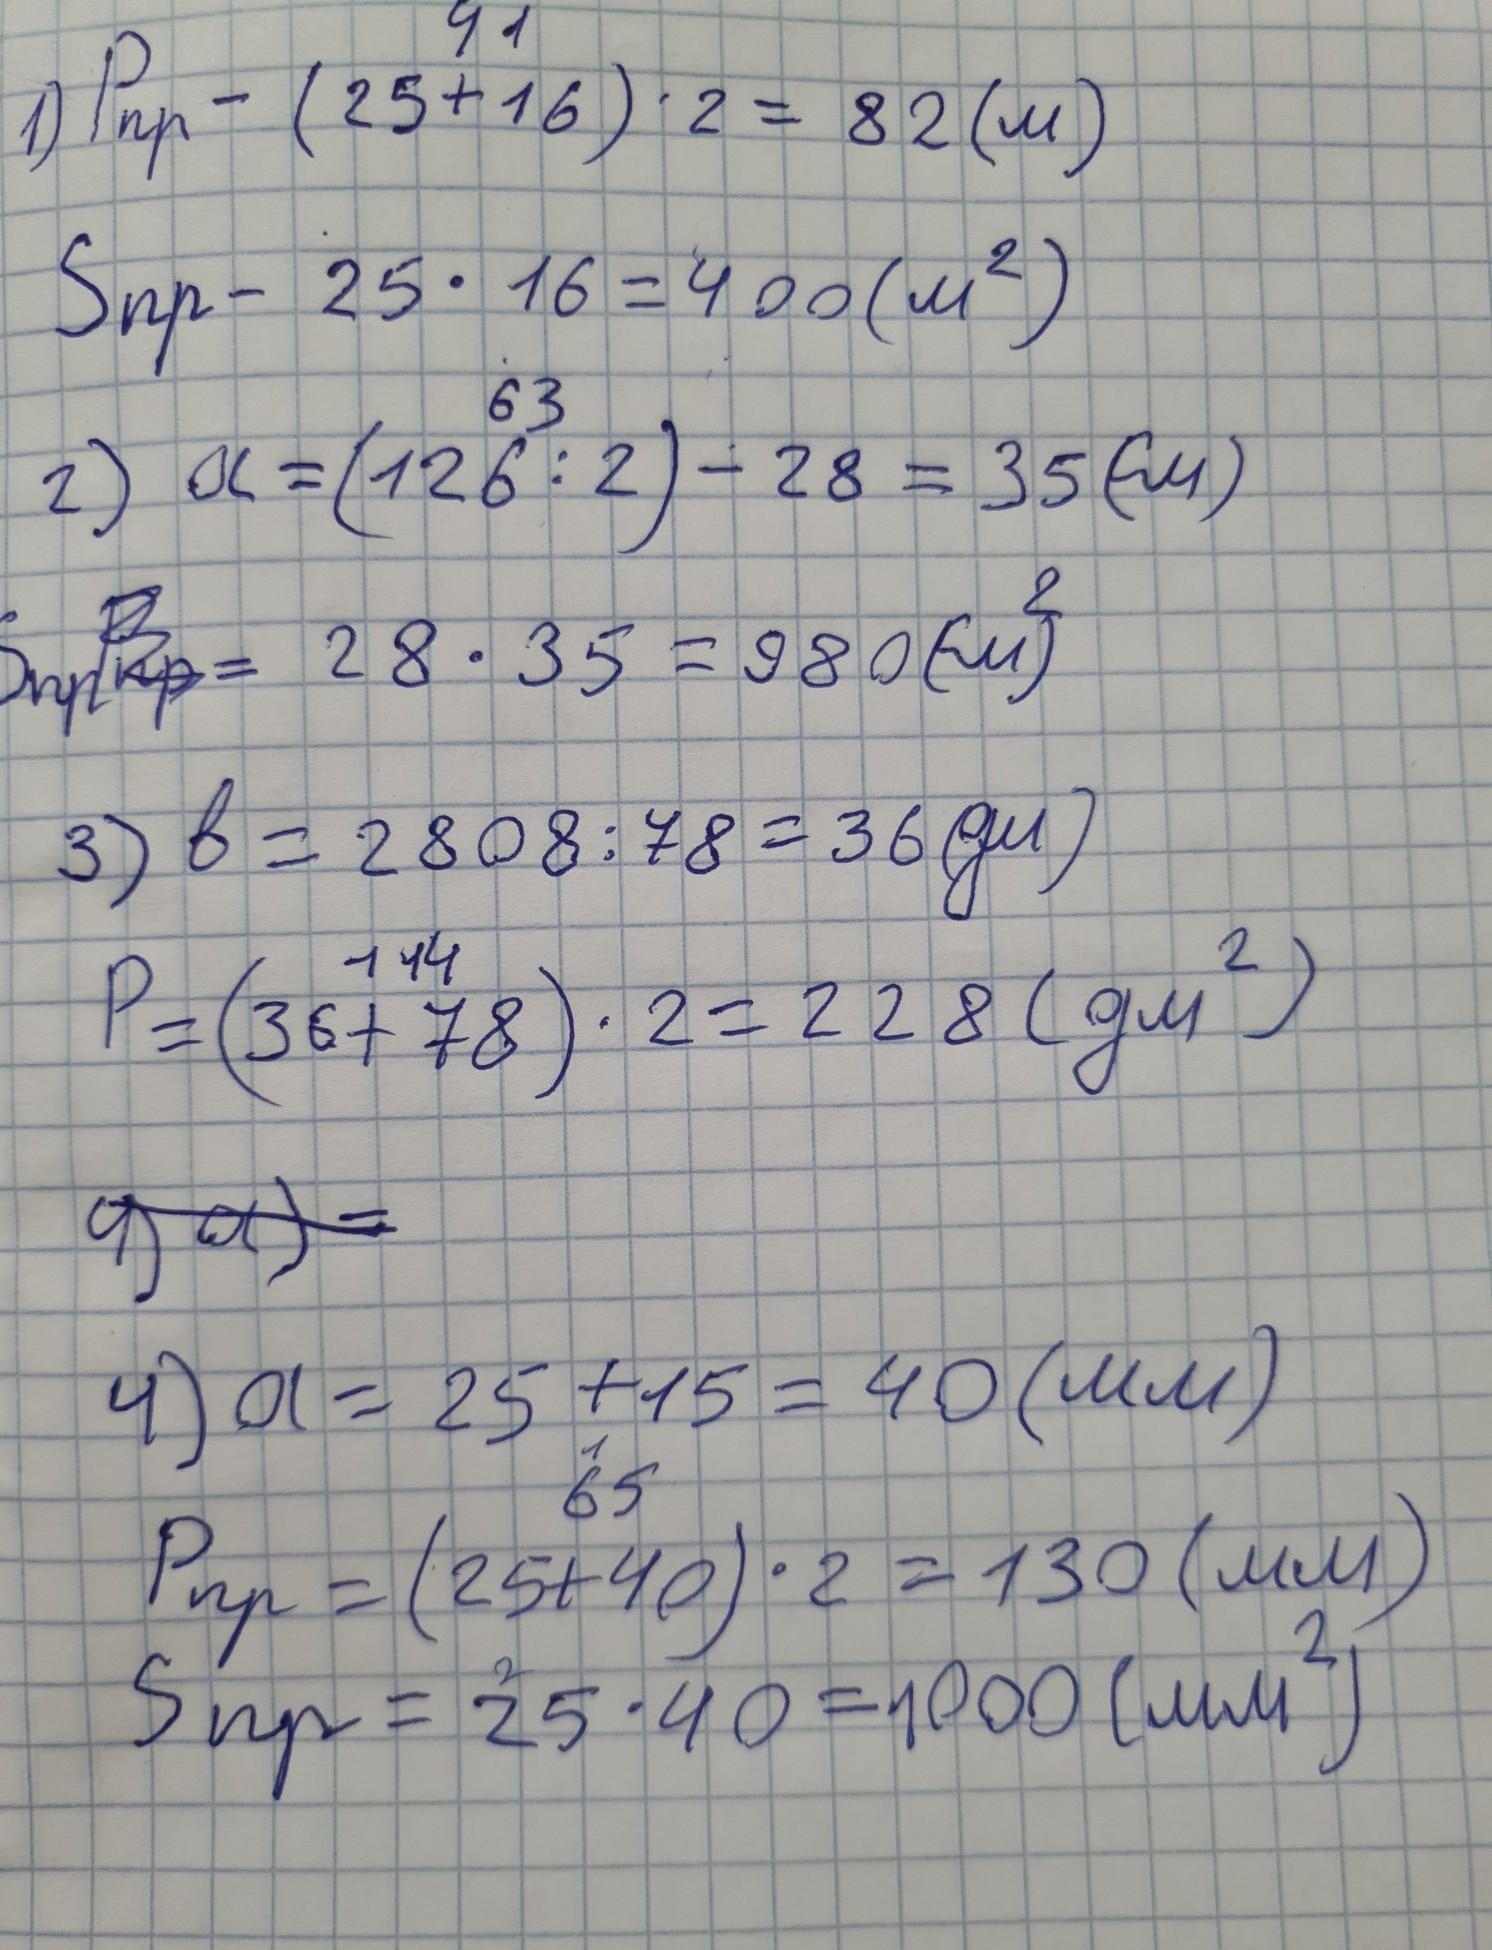 41
1) Pпр - (25+16) · 2 = 82 (м)
Sпр - 25 · 16 = 400 (м²)
63
2) a = (126 : 2) - 28 = 35 (см)
Sпр = 28 · 35 = 980 (см²)
3) в = 2808 : 78 = 36 (дм)
114
P = (36 + 78) · 2 = 228 (дм²)
4) а) =
4) a = 25 + 15 = 40 (мм)
1
65
Pпр = (25+40) · 2 = 130 (мм)
2
Sпр = 25 · 40 = 1000 (мм²)